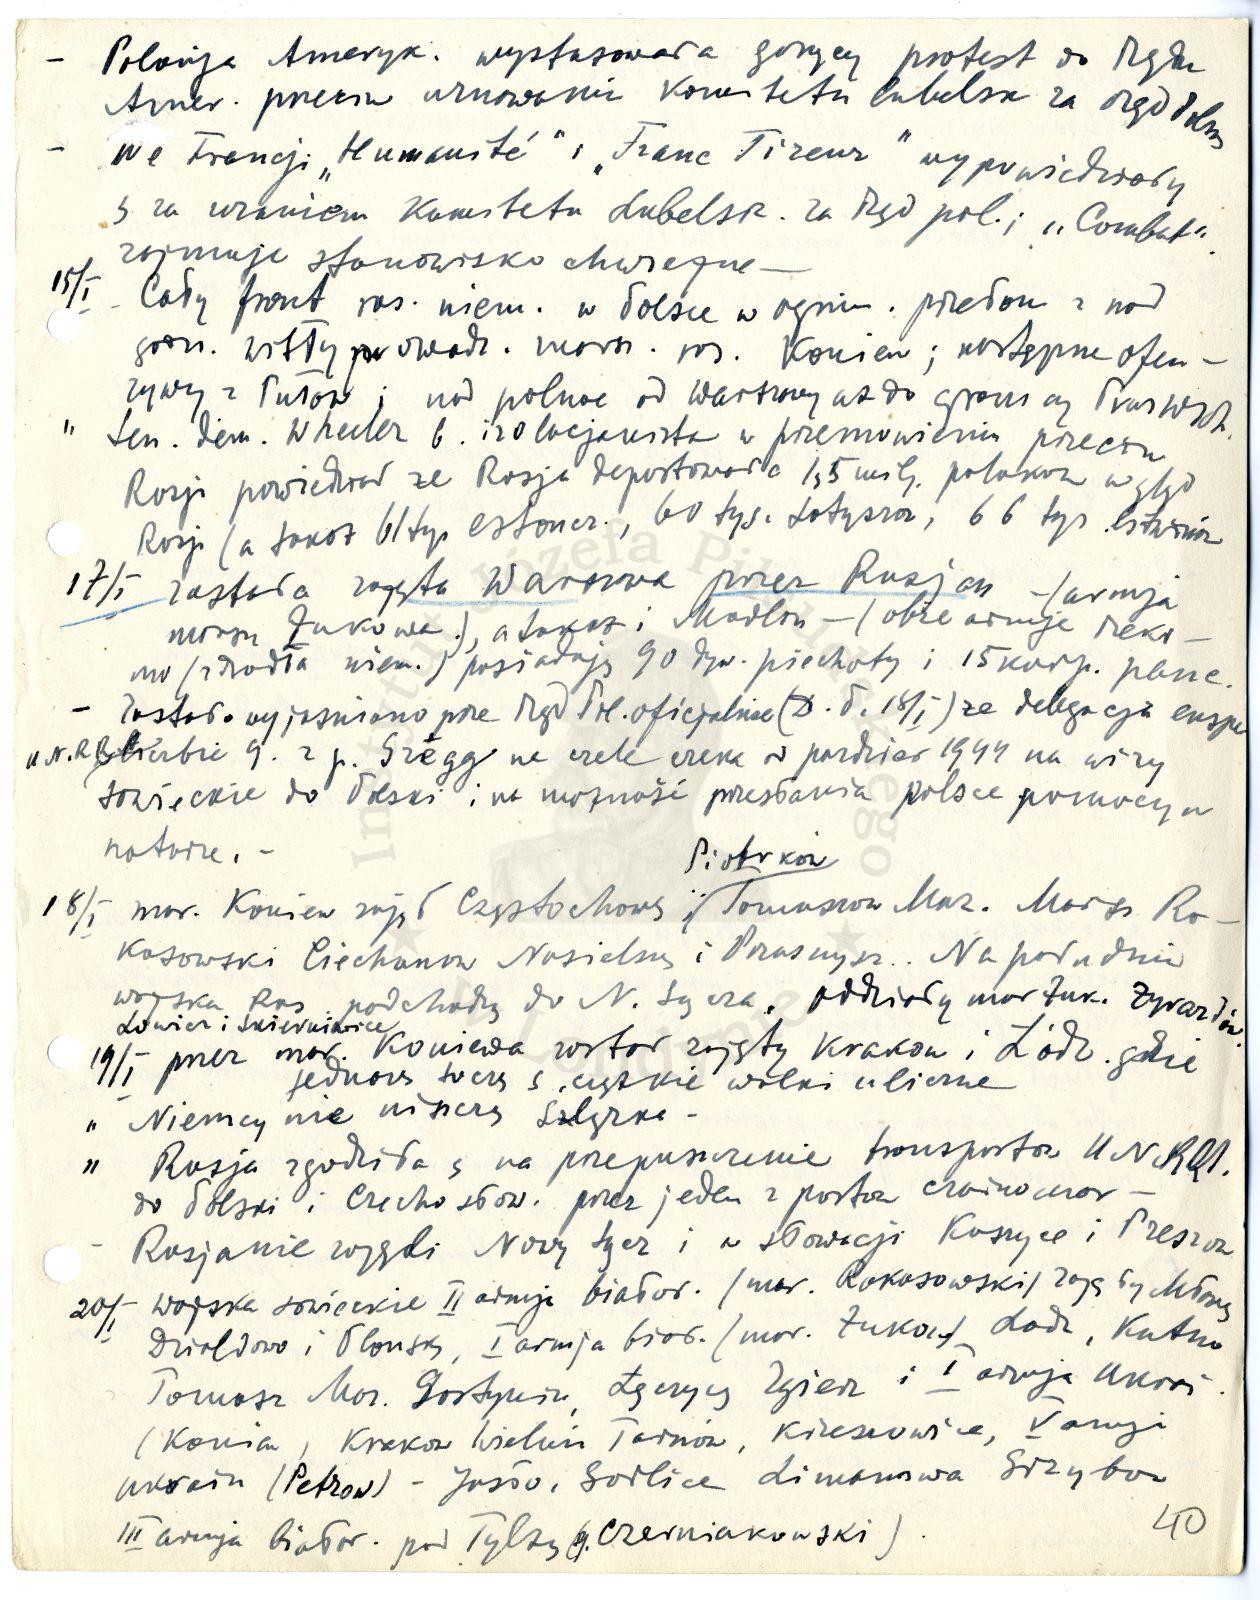 - Polonja Ameryk. wystosowała gorący protest do Rządu
Amer. przeciw uznowaniu Komitetu Lubelsk za rząd Polski
- We Francji „Humanité" i „Franc Tireur" wypowiedziały
ś za uznaniem Komitetu Lubelsk. za Rząd pol.; „Combat"
zajmuje stanowisko chwiejne —
15/I - Cały front ros. niem. w Polsce w ogniu. przełom z nad
gorn. Wisły prowadz. marsz. ros. Koniew; następne ofen-
zywy z Puław i nad północ od Warszawy aż do granicy Prus wsch.
" Sen. dem. Wheeler b. izolacjonista w przemówieniu przeciw
Rosji powiedział że Rosja deportowała 1,5 milj. polaków w głąb
Rosji (a także 61 tys estoncz., 60 tys. Łotyszów, 66 tys litwinów
17/I została zajęta Warszawa przez Rosjan - (armja
marsz Żukowa), a także i Modlin - (obie armje rzeko-
mo (źródła niem.) posiadają 90 dyw. piechoty i 15 korp. panc.
- Zostało wyjaśniono prze Rząd Pol. oficjalnie (D. P. 18/I) że delegacja ekspe
U.N.R.R. z p. Gregg na czele czeka od pazdzier 1944 na wizy
sowieckie do Polski i na możność przesłania polsce pomocy w
naturze. -
Piotrków
18/I mar. Koniew zajął Częstochowę i Tomaszow Maz. Marsz Ro-
kosowski Ciechanow Nasielsk i Przasnysz.. Na południu
wojska Ros podchodzą do N. Sącza. oddziały mar Żuk. Żyrardów
Łowicz i Skierniewice
19/I przez mar. Koniewa został zajęty Krakow i Łódz. gdzie
jednak toczą ś. ciężkie walki uliczne
" Niemcy nie niszczą Szlązka -
" Rosja zgodziła ś na przepuszczenie transportow U N R R A.
do Polski i Czechosłow. przez jeden z portow czarnomor —
- Rosjanie zajęli Nowy Sącz i w Słowacji Koszyce i Preszow
20/I wojska sowieckie II armja białor. (mar. Rokosowski) zajęły Mławę
Działdowo i Płońsk, I armja biał. (mar. Żukow) Łodz, Kutno
Tomasz Maz. Gostynin, Łęczycę Zgierz i I armja Ukrai.
(Koniew, Krakow Wieluń Tarnów, Krzeszowice, IV armja
ukrain (Petrow) - Jasło, Gorlice Limanowa Grzybow
III armja białor. pod Tylżą (g. Czerniakowski).
40